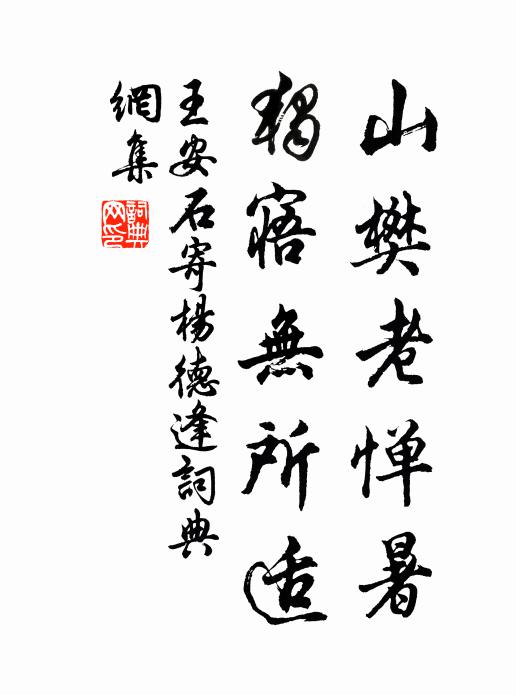 山樊老惮暑
獨寤無所适
王安石寄楊德逢詞典
網集
詞典
网印